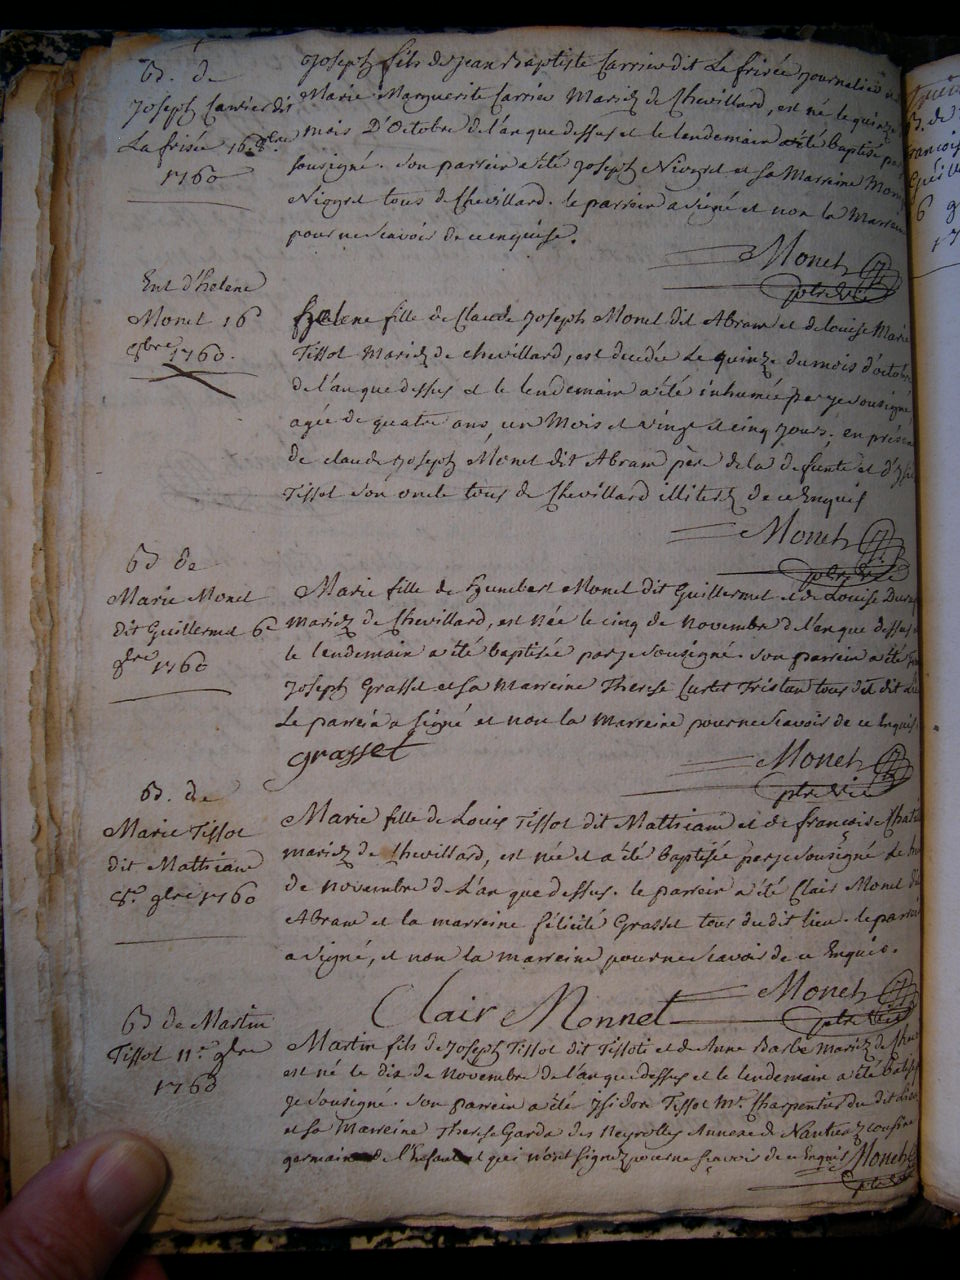 B. de
Joseph Carrier dit
La frisée 16 8bre
1760
Joseph fils de Jean Baptiste Carrier dit La frisée journalier et
Marie Marguerite Carrier Mariez de Chevillard, est né le quinze
mois D'Octobre de l'an que dessus et le lendemain a été baptisé par
soussigné. Son parrein a été Joseph Niogret et sa Marreine Marie
Niogret tous de Chevillard. le parrein a signé et non la Marreine
pour ne scavoir de ce enquise.
Monet
ptre vic
Ent d'helene
Monet 16
8bre 1760.
helene fille de Claude Joseph Monet dit Abram et de louise Marie
Tissot Mariez de chevillard, est decedée Le quinze du mois d'octobre
de l'an que dessus et le lendemain a été inhumée par je sousigné
agée de quatre ans, un Mois et vingt et cinq jours, en présence
de claude joseph Monet dit Abram père de la defunte et d'
Tissot son oncle tous de Chevillard illiterez de ce Enquis
Monet
ptre vic
B de
Marie Monet
dit Guillermet 6e
9bre 1760
Marie fille de humbert Monet dit Guillermet et de Louise
mariez de Chevillard, est née le cinq de novembre de l'an que dessus
le lendemain a été baptisée par je sousigné. Son parrein a été
Joseph Grasset et sa Marreine Therese Curtet Tristan tous du dit
Le parrein a signé et non la Marreine pour ne scavoir de ce Enquis
grasset
Monet
ptre vic
B. de
Marie Tissot
dit Mathiam
8e 9bre 1760
Marie fille de Louis Tissot dit Mathiam et de françoise
mariez de Chevillard, est née et a été baptisée par je sousigné le
de novembre de L'an que dessus. le parrein a été Clair Monet dit
Abram et la marreine félicité Grasset tous du dit lieu. le parrein
a signé, et non la marreine pour ne scavoir de ce Enquis.
Clair Monnet
Monet
ptre vic
B de Martin
Tissot 11e 9bre
1760
Martin fils de Joseph Tissot dit Tissoti et de Anne Barbe mariez de
est né le dix de Novembre de l'an que dessus et le lendemain a été
je sousigné. Son parrein a été Isidore Tissot Me Charpentier du dit Lieu
et sa Marreine Therese Garda des Neyrolles Annexe de Nantua cousine
germaine de l'Enfant qui n'ont signez pour ne scavoir de ce Enquis
Monet
ptre vic